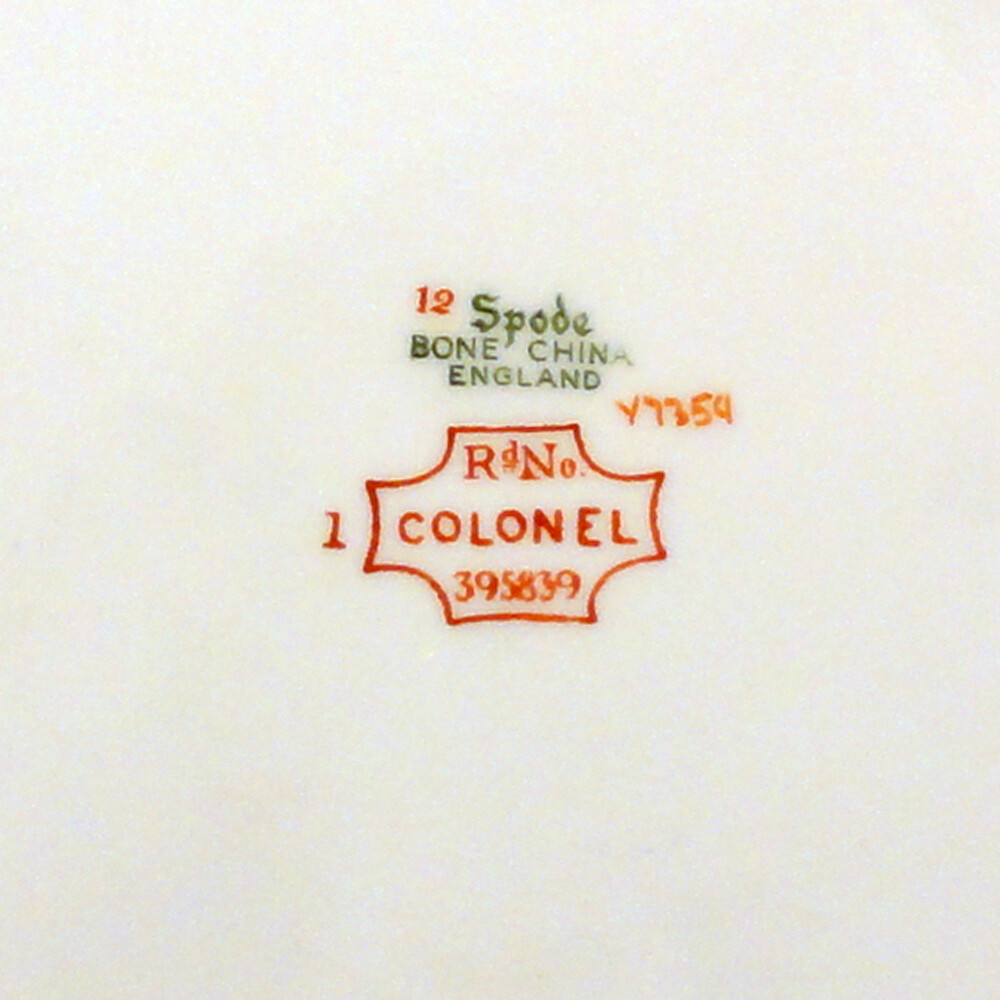 12 Spode
BONE CHINA
ENGLAND
Y7354
RdNo.
1 COLONEL
395839